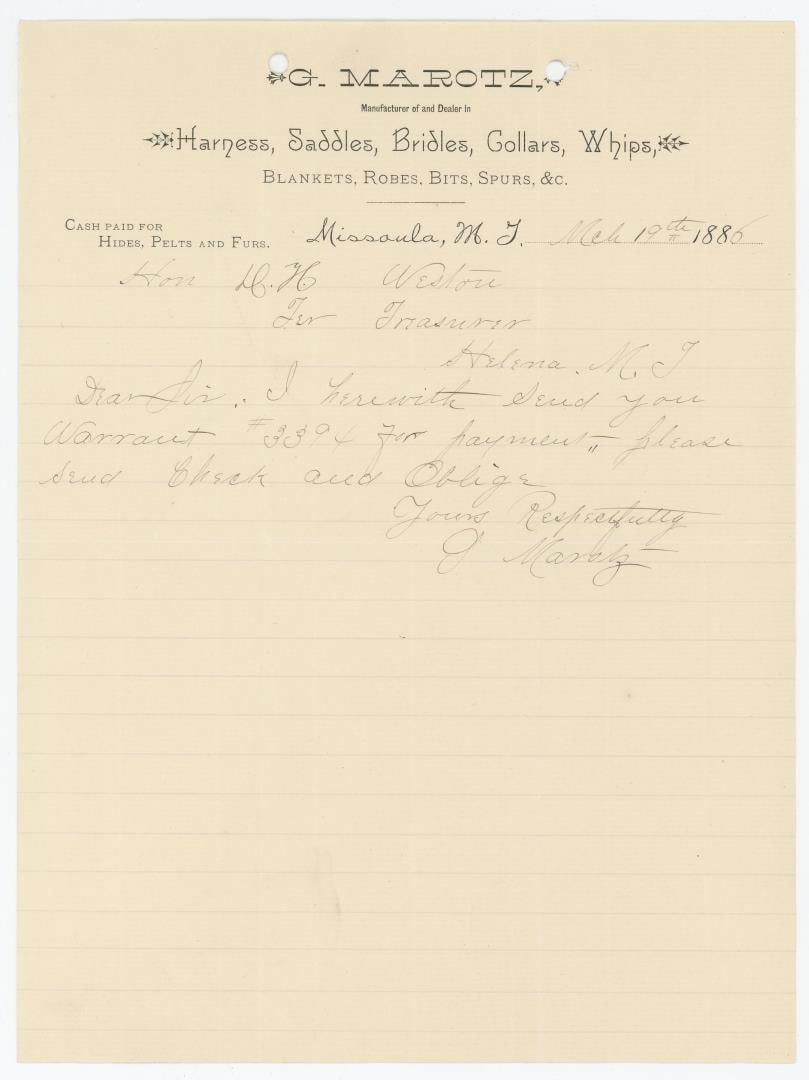 G. MAROTZ,
Manufacturer of and Dealer in
Harness, Saddles, Bridles, Collars, Whips,
BLANKETS, ROBES, BITS, SPURS, &C.
CASH PAID FOR
HIDES, PELTS AND FURS.
Missoula, M. T. Mch 19th 1886
Hon D. H. Weston
Ter Treasurer
Helena. M. T
Dear Sir. I herewith send you
Warrant #3394 for payment, please
send Check and Oblige
Yours Respectfully
G Marotz